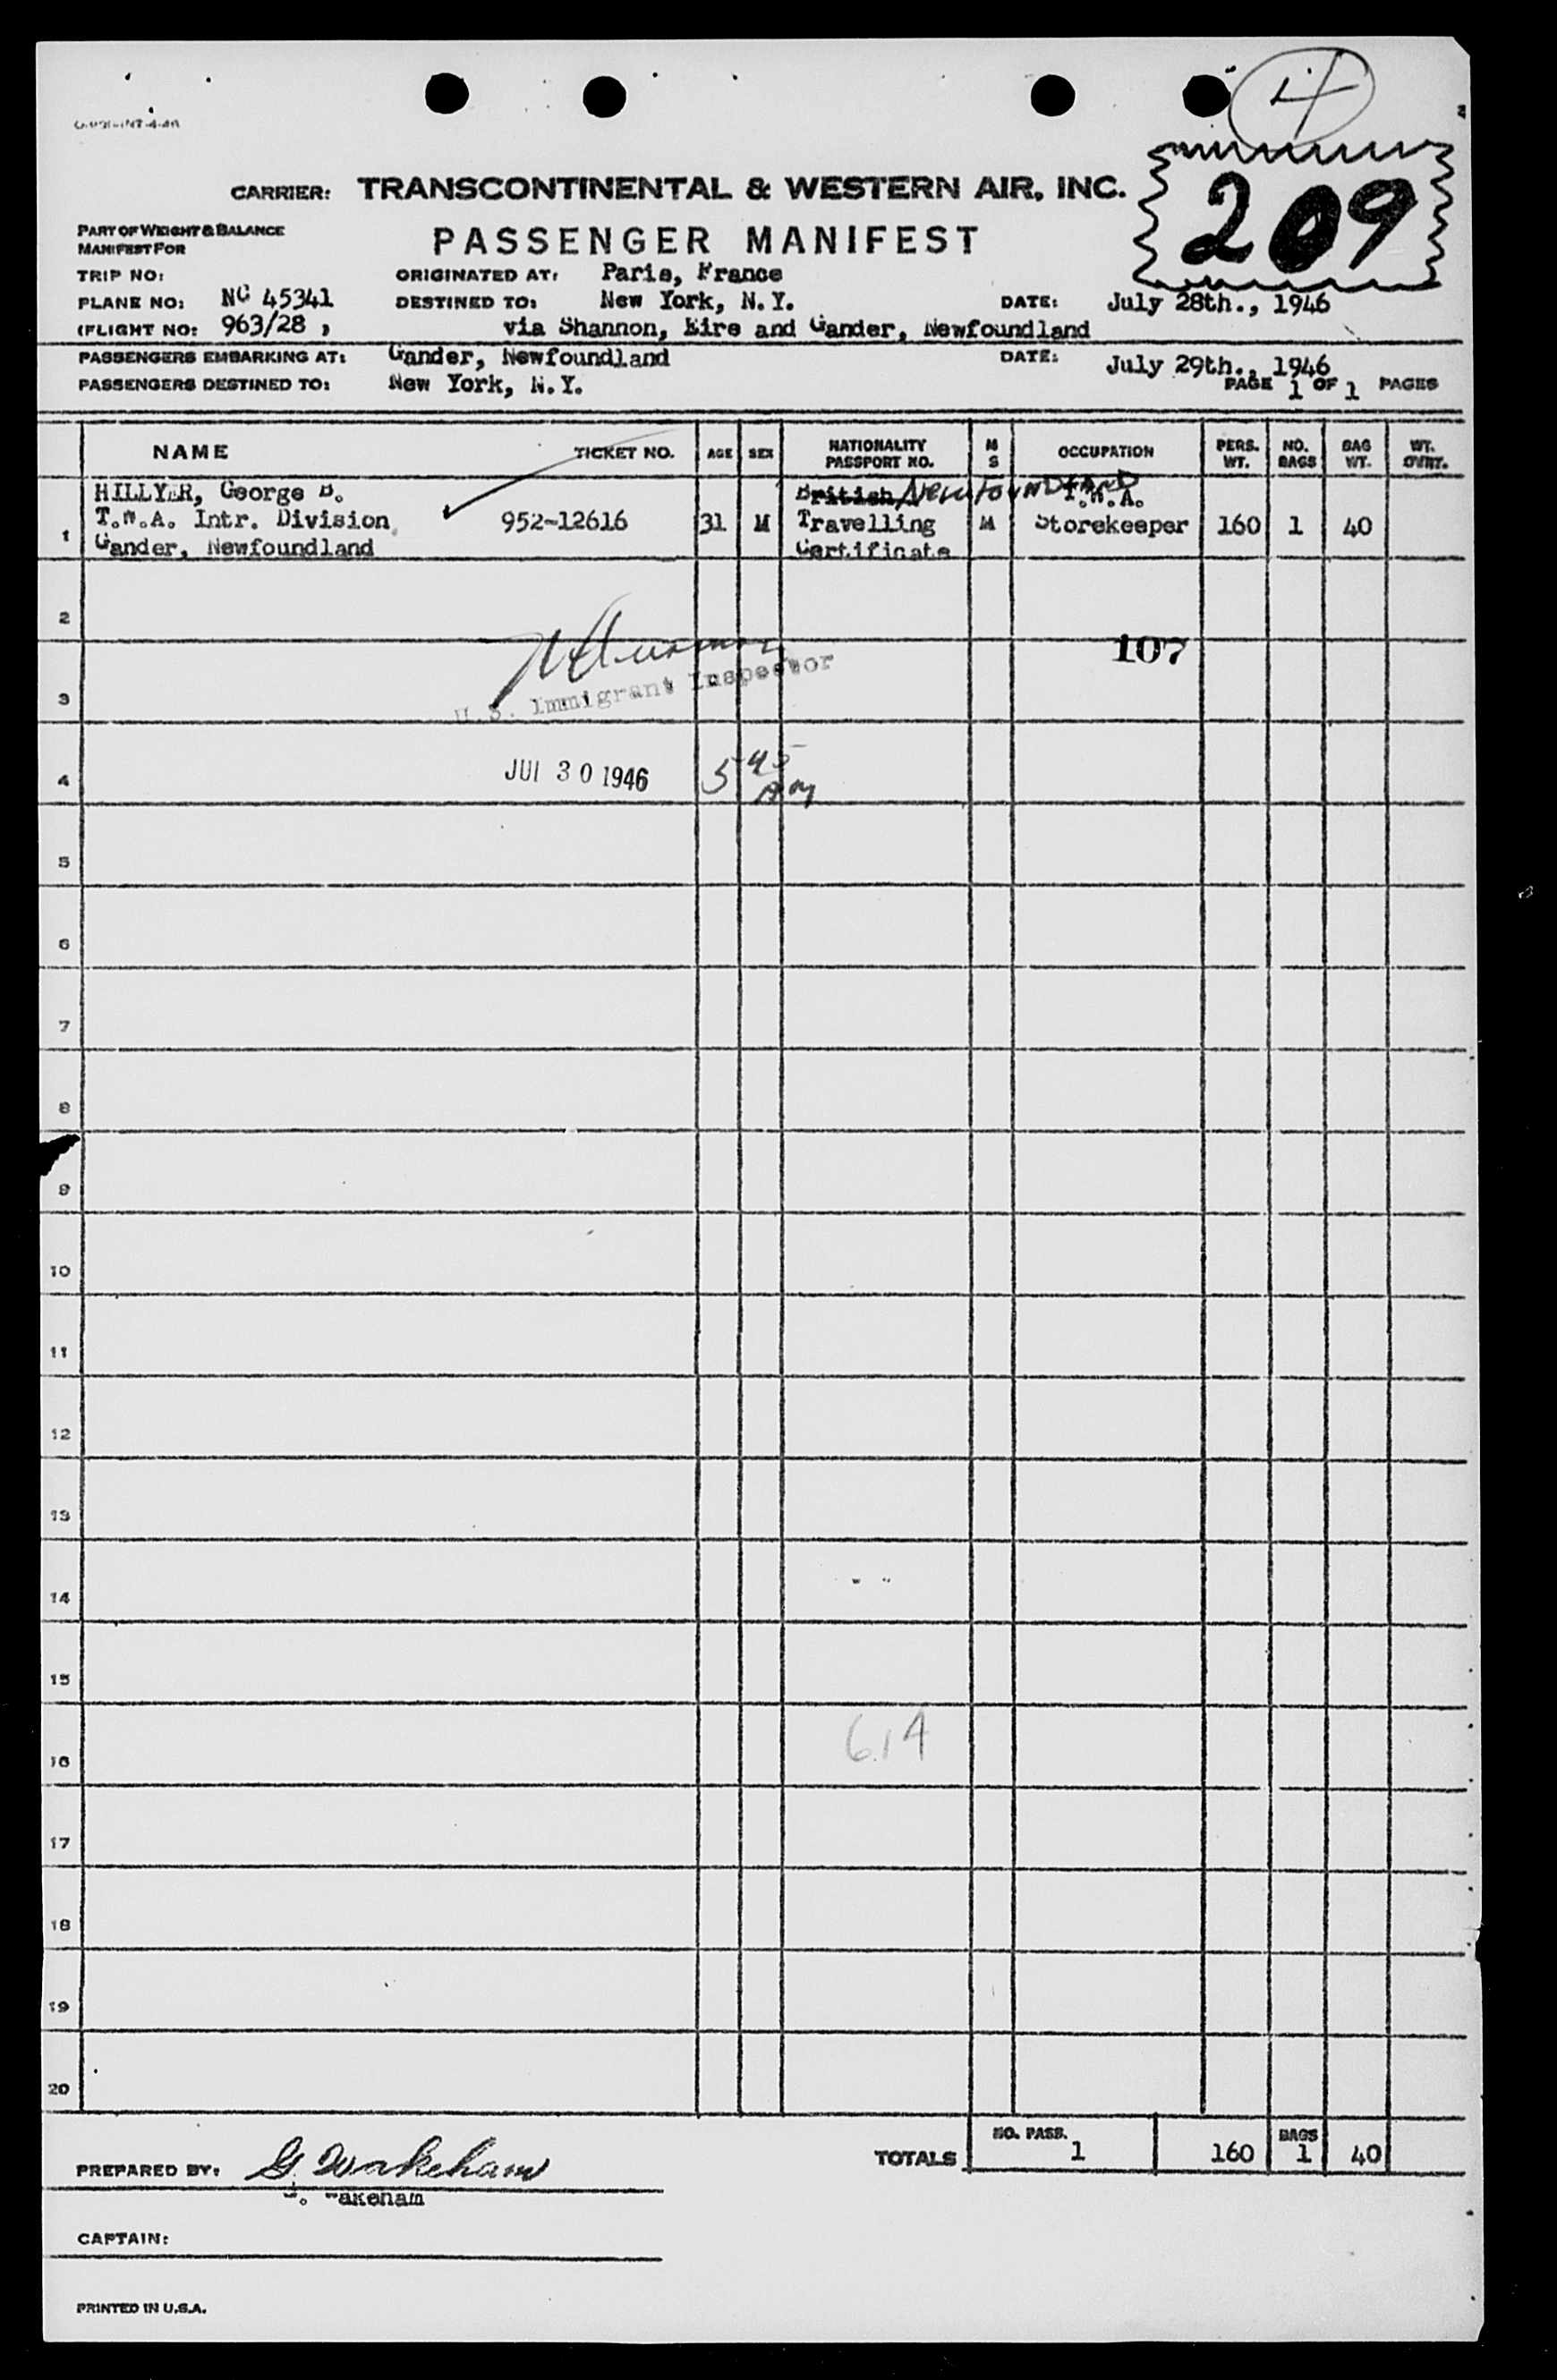 4
209
CARRIER: TRANSCONTINENTAL & WESTERN AIR, INC.
PART OF WEIGHT & BALANCE
MANIFEST FOR
PASSENGER MANIFEST
TRIP NO: ORIGINATED AT: Paris, France
PLANE NO: NC 45341 DESTINED TO: New York, N.Y. DATE: July 28th., 1946
(FLIGHT NO: 963/28 , via Shannon, Eire and Gander, Newfoundland
PASSENGERS EMBARKING AT: Gander, Newfoundland DATE: July 29th., 1946
PASSENGERS DESTINED TO: New York, N.Y. PAGE 1 OF 1 PAGES
NAME TICKET NO. AGE SEX NATIONALITY PASSPORT NO. M S OCCUPATION PERS. WT. NO. BAGS BAG WT. WT. OVRT.
HILLYER, George B. British NEWFOUNDLAND T.W.A.
1 T.W.A. Intr. Division 952-12616 31 M Travelling M Storekeeper 160 1 40
Gander, Newfoundland Certificate
2
107
3 U.S. Immigrant Inspector
4 JUL 30 1946 5 45 AM
5
6
7
8
9
10
11
12
13
14
15
16 614
17
18
19
20
TOTALS NO. PASS. 1 160 BAGS 1 40
PREPARED BY: G. Wakeham
G. Wakeham
CAPTAIN:
PRINTED IN U.S.A.